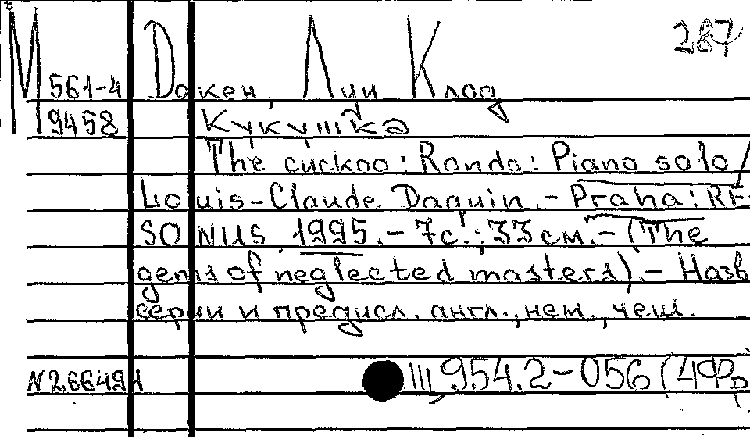 287
М 561-4 Дакен, Луи Клод
9458 Кукушка
The cuckoo: Rondo: Piano solo /
Louis-Claude Daquin. - Praha: RE-
SONUS, 1995. - 7с.; 33 см. - (The
gems of neglected masters). - Назв.
серии и предисл. англ., нем., чеш.
N266491 Щ954.2-056(4Фр